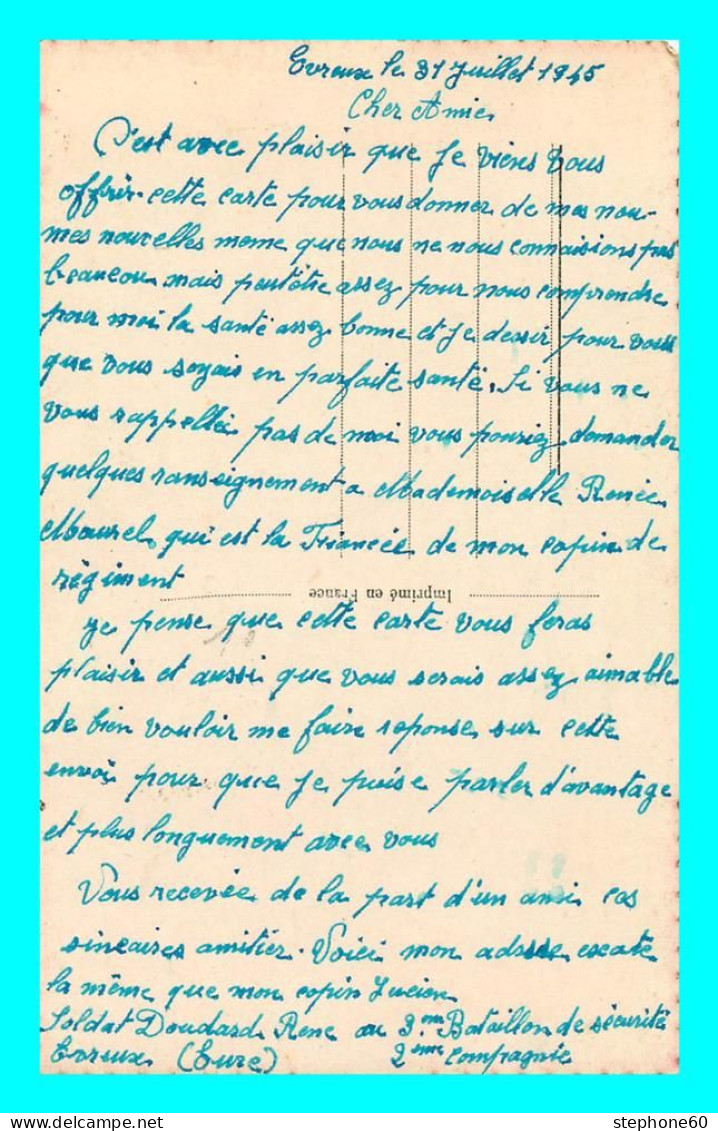 Evreux le 31 Juillet 1945
Cher Amie
C'est avec plaisir que Je viens vous
offrir cette carte pour vous donner de mes nou-
mes nouvelles meme que nous ne nous connaisions pas
beaucou mais peutêtre assez pour nous comprendre
pour moi la santé assez bonne et Je dessir pour vous
que vous soyais en parfaite santé. Si vous ne
vous rappellée pas de moi vous pouriez demander
quelques ranseignement a Mademoiselle Renée
Mourel qui est la Fiancée de mon copin de
règiment
Imprimé en France
Je pense que cette carte vous feras
plaisir et aussi que vous serais assez aimable
de bien vouloir me faire reponse sur cette
envoi pour que Je puise parler d'avantage
et plus longuement avec vous
Vous recevée de la part d'un ami ces
sincaires amitier. Voici mon adresse excate
la même que mon copin Lucien
Soldat Doudard Rene au 3.me Bataillon de sécurité
Evreux (Eure) 2eme compagnie
stephone60